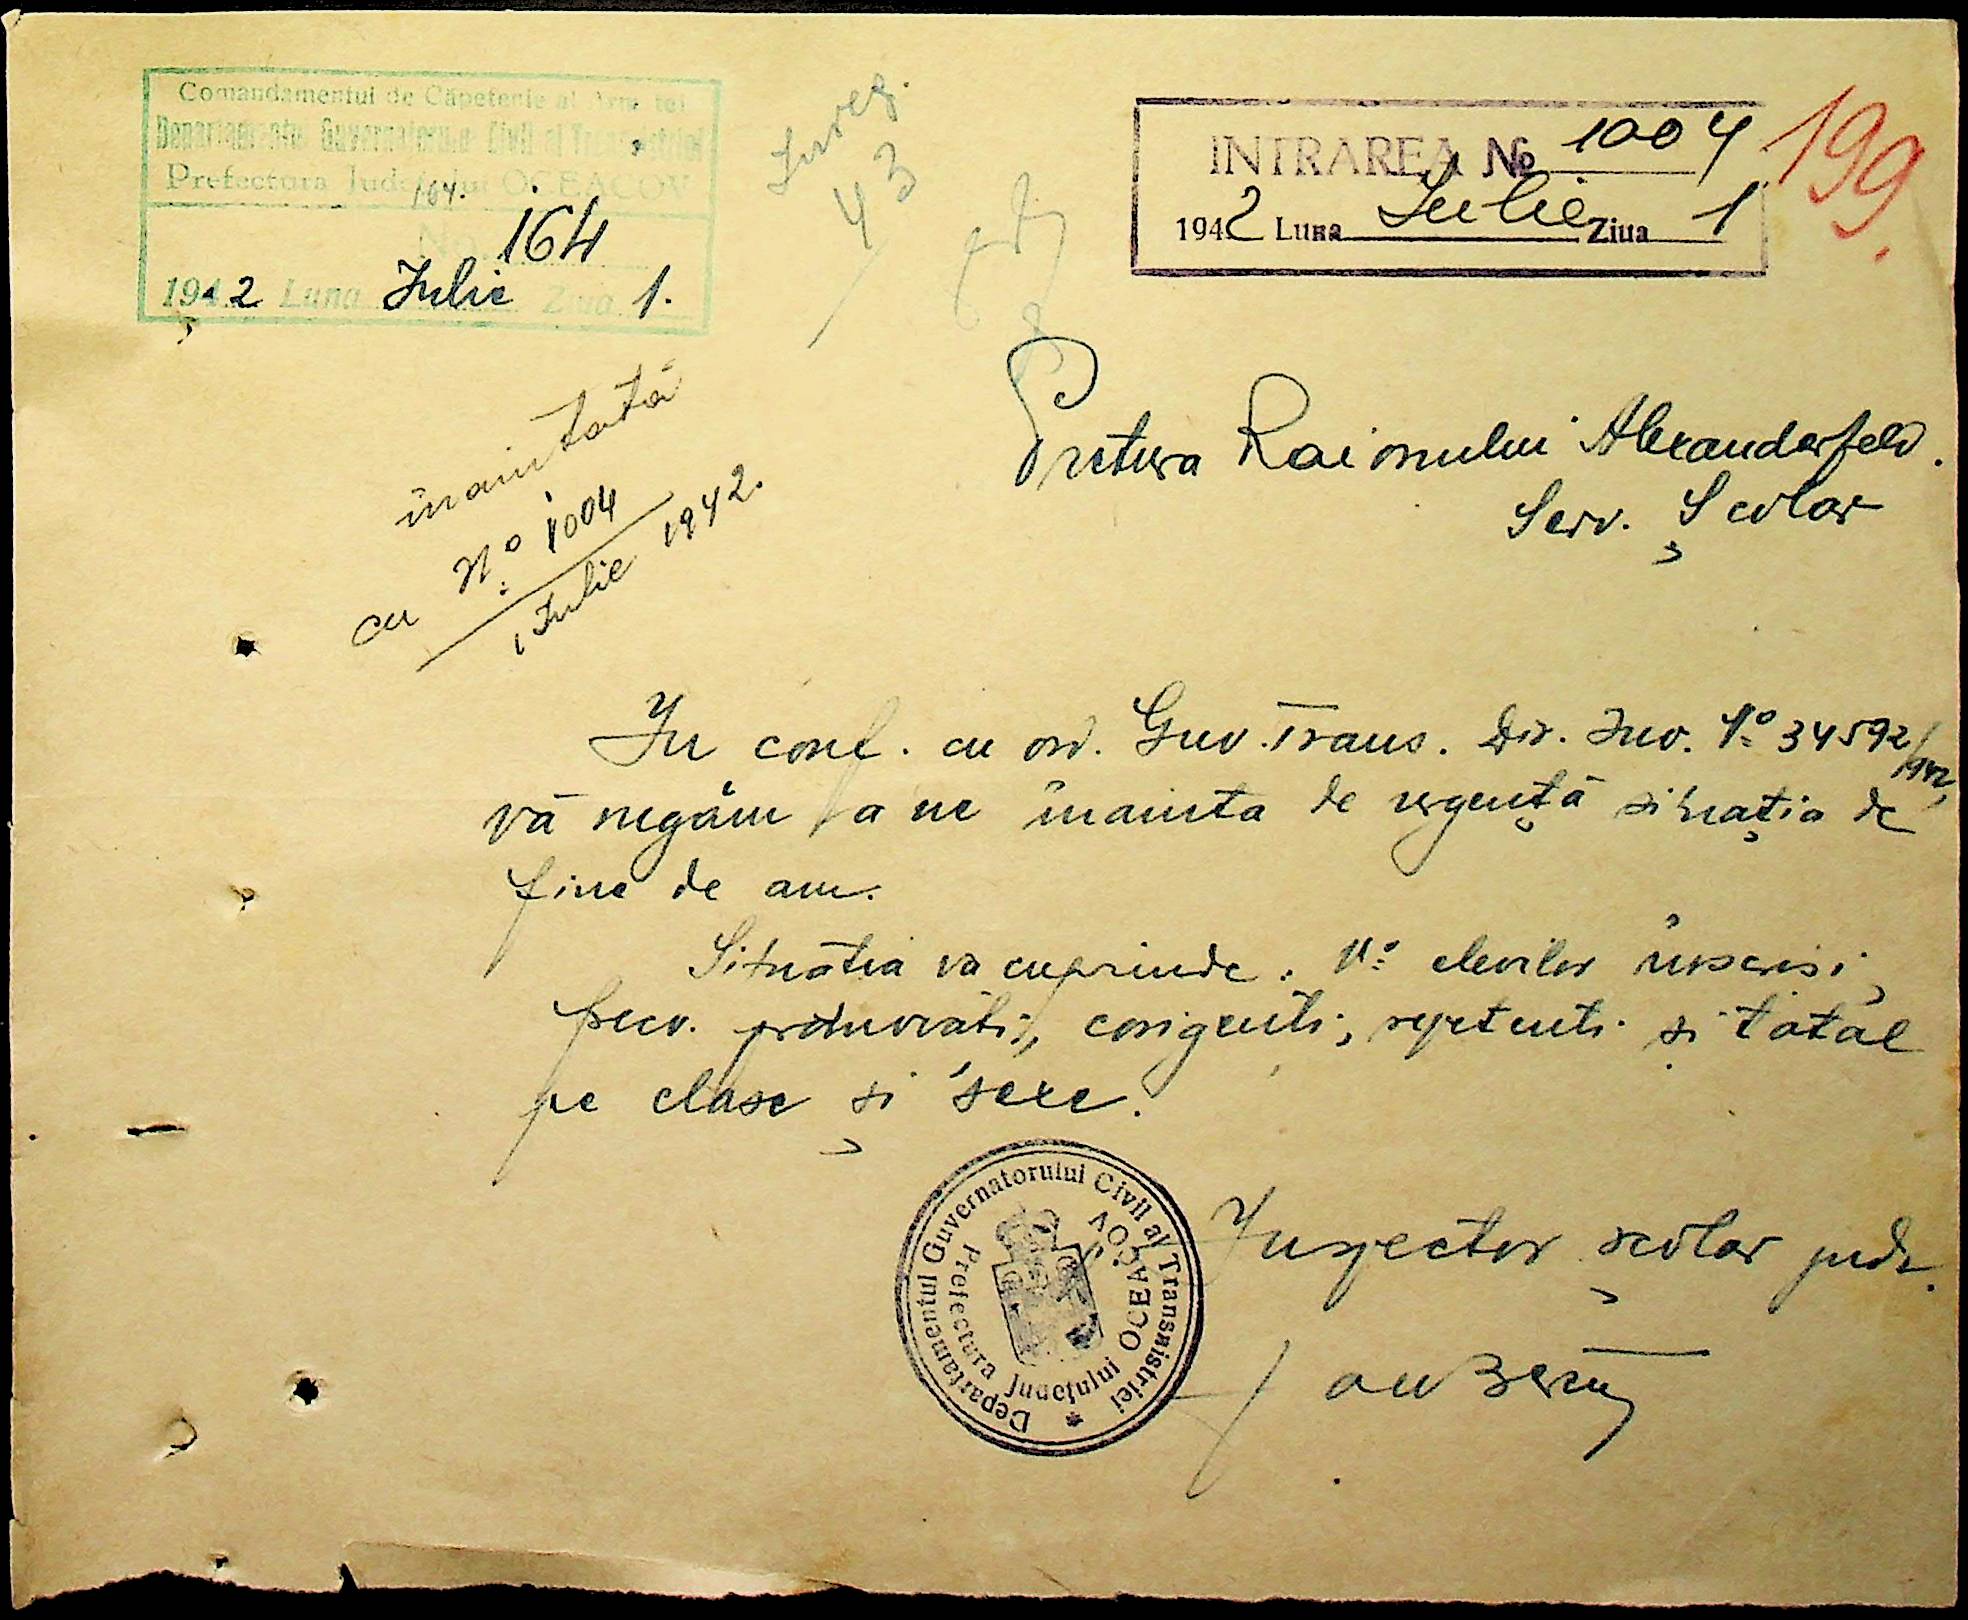 Comandamentul de Căpetenie al Armatei
Departamentul Guvernatorului Civil al Transnistriei
Prefectura Județului OCEACOV
164.
No. 164
1942 Luna Iulie Ziua 1.
Inreg.
43
INTRAREA No 1004
1942 Luna Iulie Ziua 1
199.
înaintată
cu No 1004
1 Iulie 1942.
Pretura Raionului Alexanderfeld.
Serv. Școlar
In conf. cu ord. Guv. Trans. Dir. Inv. No 34592/942,
vă rugăm a ne înainta de urgență situația de
fine de an.
Situatia va cuprinde: No elevilor înscrisi,
frecv. promovati, corigenti, repetenti și total
pe clase și sexe.
Departamentul Guvernatorului Civil al Transnistriei
Prefectura Județului OCEACOV
Inspector școlar jud.